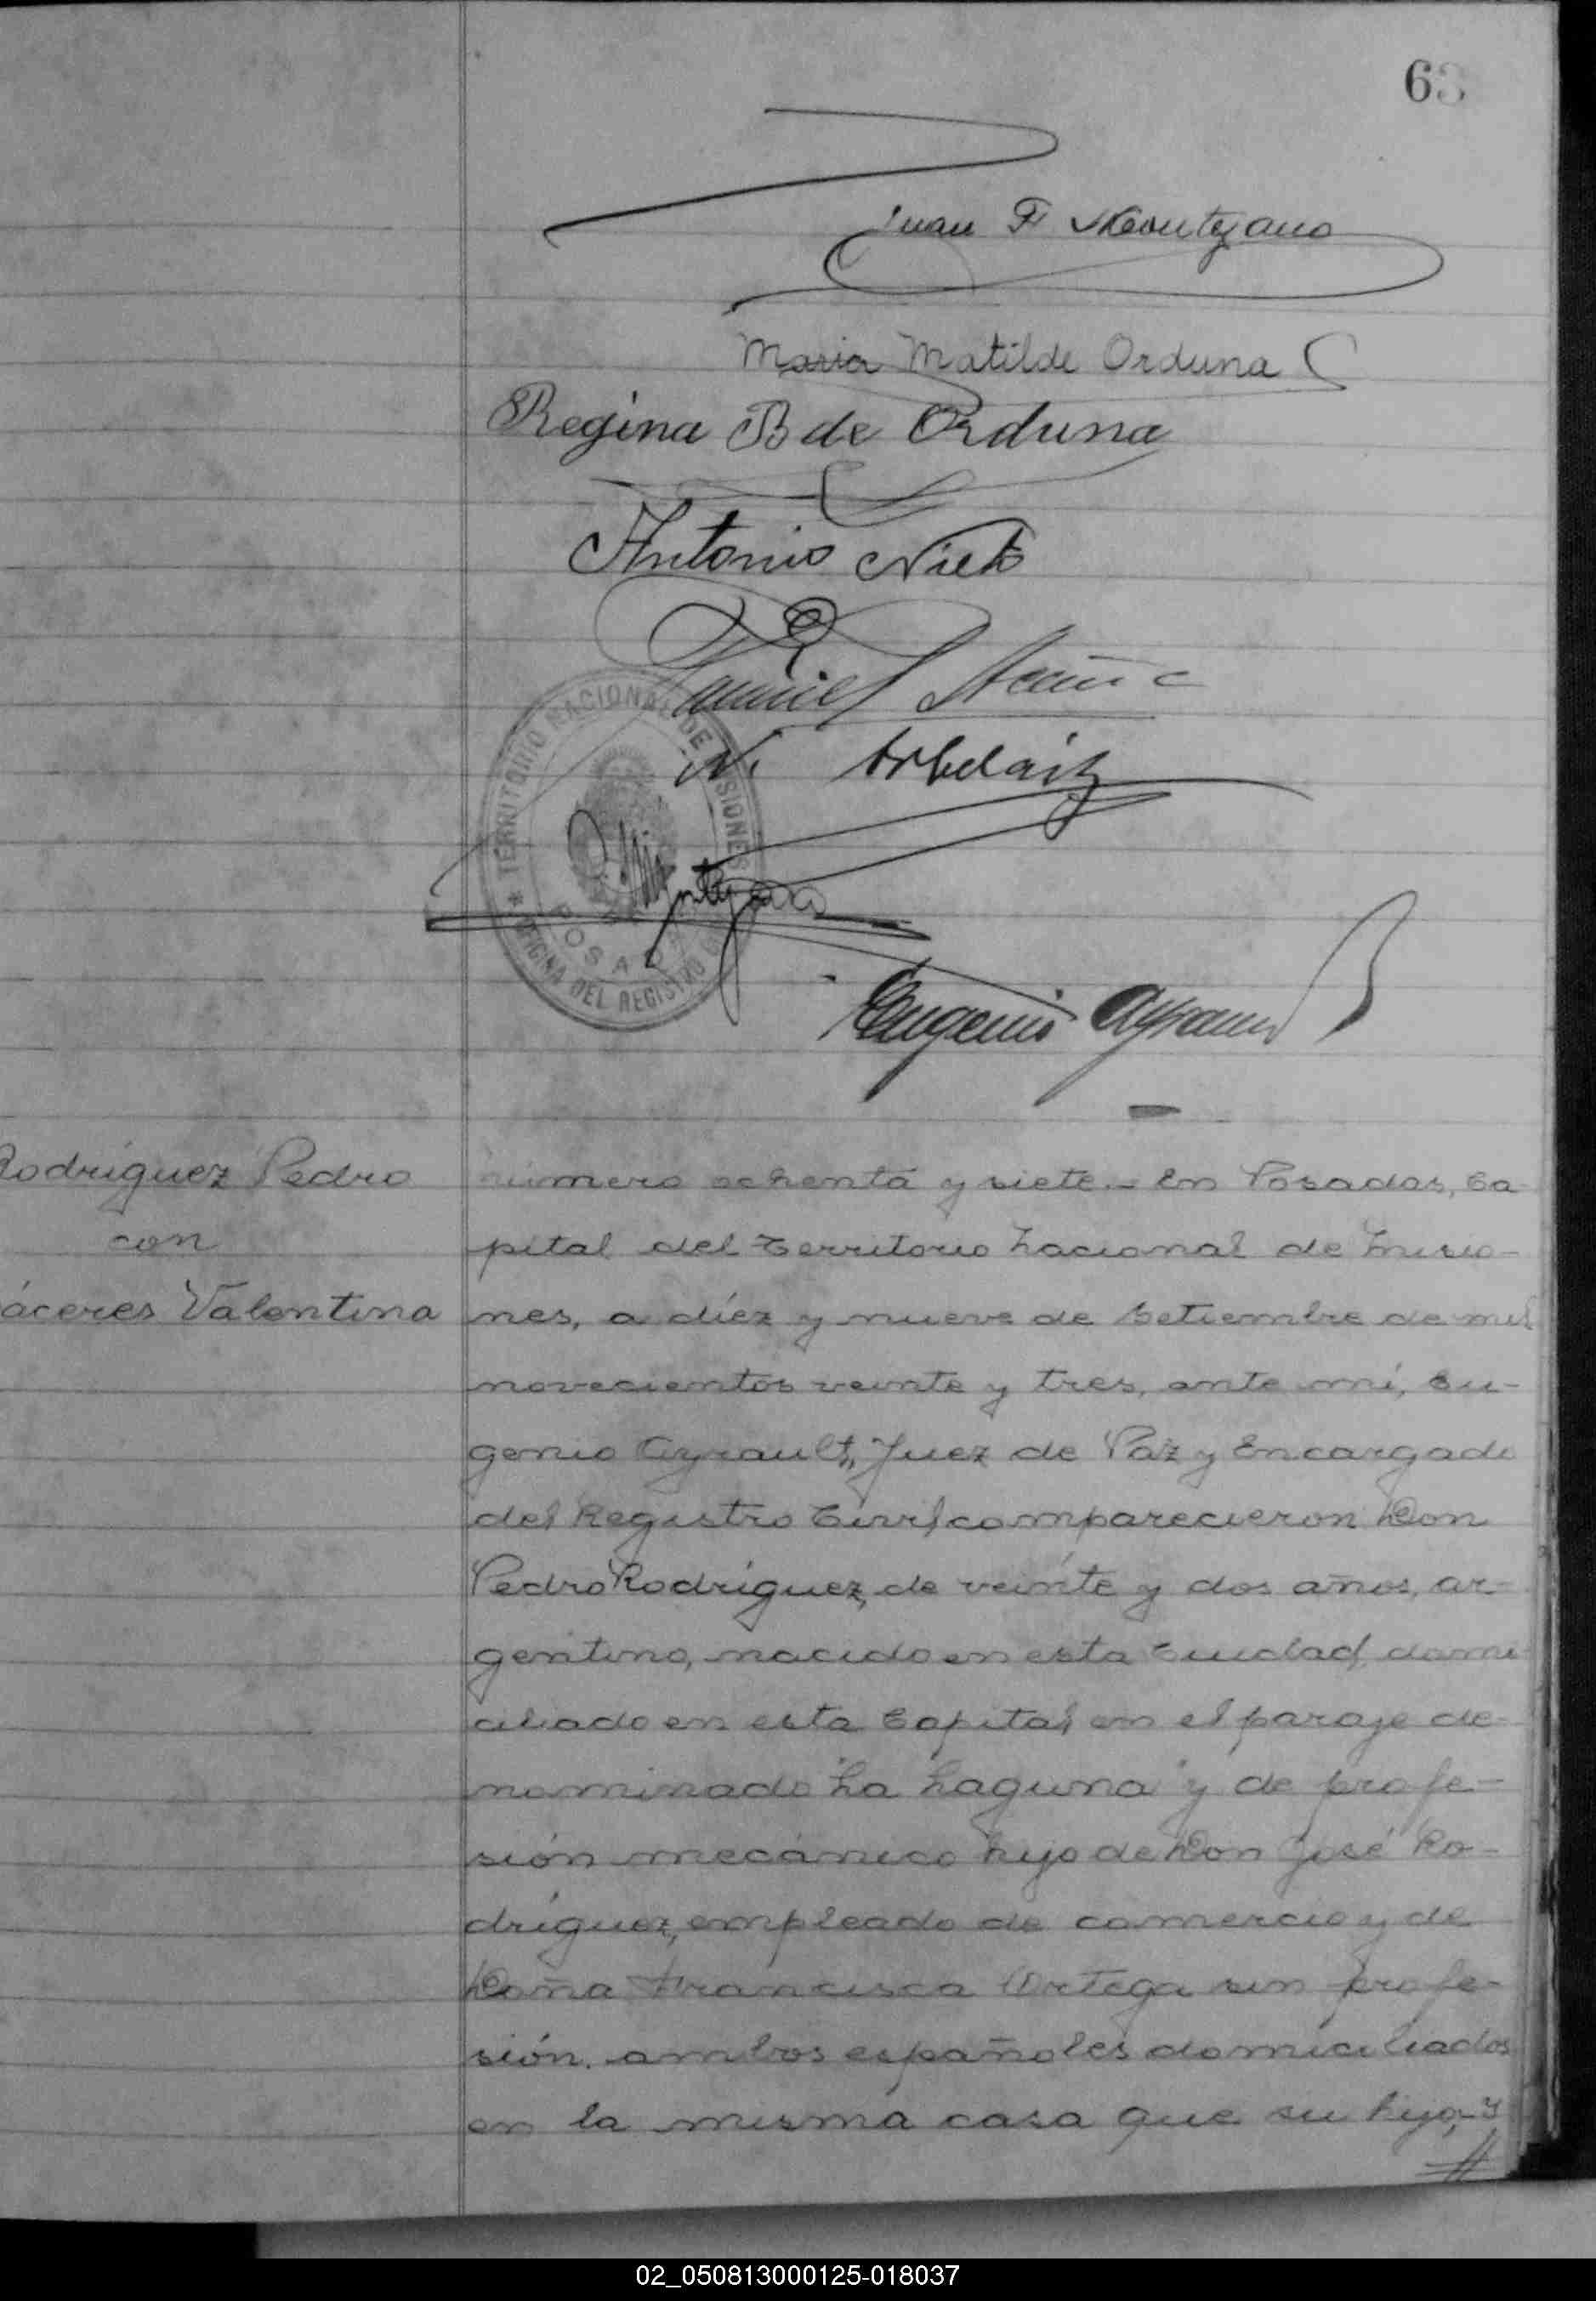 63
Juan F Montezano
Maria Matilde Orduna
Regina B de Orduna
Antonio Nieto
Daniel Acuña
N. Arbelaiz
TERRITORIO NACIONAL DE MISIONES
POSADAS
OFICINA DEL REGISTRO
Eugenio Ayrault
Rodríguez Pedro
con
áceres Valentina
número ochenta y siete.- En Posadas, Ca-
pital del Territorio Nacional de Misio-
nes, a diéz y nueve de Setiembre de mil
novecientos veinte y tres, ante mí, Eu-
genio Ayrault, Juez de Paz y Encargado
del Registro Civil comparecieron Don
Pedro Rodríguez, de veinte y dos años, ar-
gentino, nacido en esta Ciudad, domi-
ciliado en esta Capital en el paraje de-
nominado "La Laguna" y de profe-
sión mecánico hijo de Don José Ro-
dríguez, empleado de comercio y de
Doña Francisca Ortega sin profe-
sión. ambos españoles domiciliados
en la misma casa que su hijo,- y
//
02_050813000125-018037